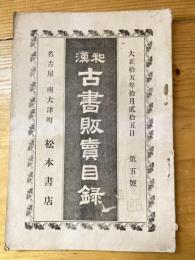 大正拾五年拾月貳拾五日
第五號
和漢
古書販賣目録
名古屋 南大津町
松本書店